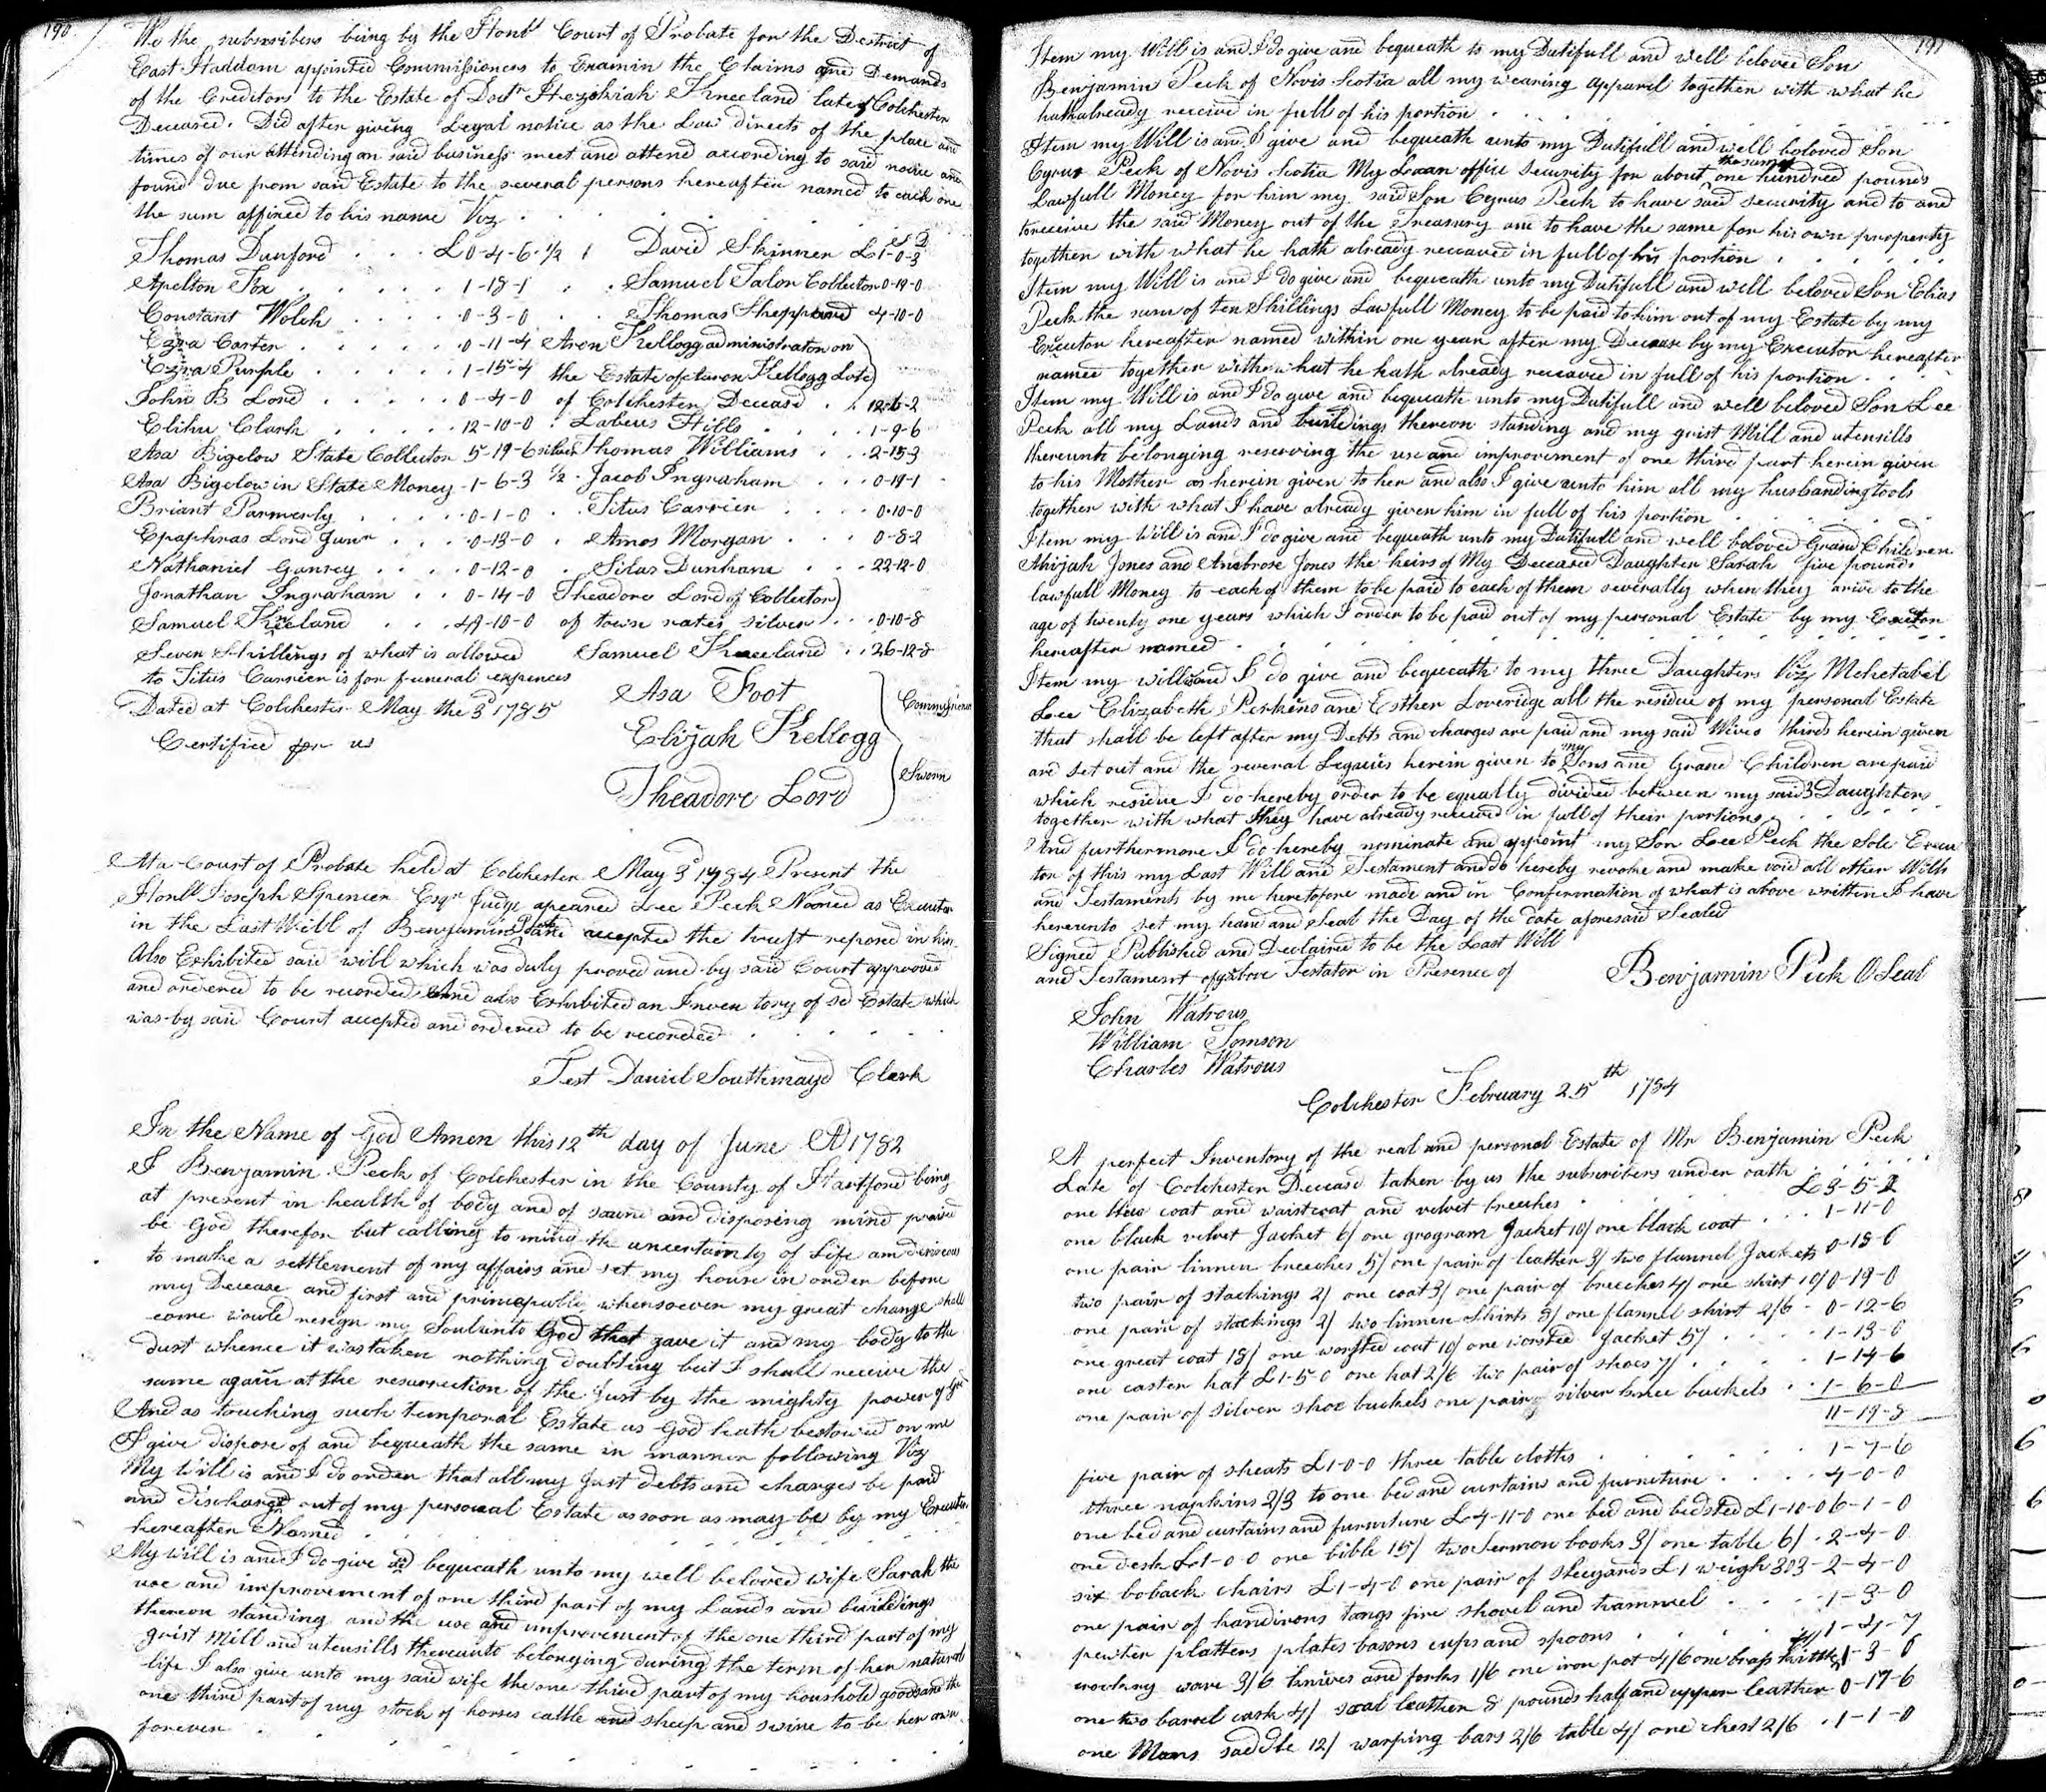 190
We the subscribers being by the Honbl Court of Probate for the Destrict of
East Haddam appointed Commissioners to Examin the Claims and Demands
of the Creditors to the Estate of Doctr Hezekiah Kneeland late of Colchester
Deceased. Did after giving Legal notice as the Law directs of the place and
times of our attending on said business meet and attend according to said notice and
found due from said Estate to the several persons hereafter named to each one
the sum affixed to his name Viz
Thomas Dunford £0-4-6-1/2 David Skinner £1-0-3
Apelton Fox 1-18-1 Samuel Talor Collector 0-19-0
Constant Welch 0-3-0 Thomas Sheppard 4-10-0
Ezra Carter 0-11-4 Aron Kellogg administrator on
Ezra Purple 1-15-4 the Estate of Aaron Kellogg Late
John B Lord 0-4-0 of Colchester Deceasd 12-6-2
Elihu Clark 12-10-0 Labeus Hills 1-9-6
Asa Bigelow State Collector 5-19-6 silver Thomas Williams 2-15-3
Asa Bigelow in State Money 1-6-3 1/2 Jacob Ingraham 0-19-1
Briant Parmerly 0-1-0 Titus Carrier 0-10-0
Epaphras Lord Junr 0-13-0 Amos Morgan 0-8-2
Nathaniel Ganrey 0-12-0 Silas Dunham 22-12-0
Jonathan Ingraham 0-14-0 Theadore Lord of Collector
Samuel Kneeland 49-10-0 of town rates silver 0-10-8
Seven Shillings of what is allowed Samuel Kneeland 26-12-8
to Titus Carrier is for funeral expences
Dated at Colchester May the 3d 1785
Certified per us
Asa Foot
Elijah Kellogg
Theadore Lord
Commissioners
Sworn
At a Court of Probate held at Colchester May 3d 1784 Present the
Honbl Joseph Spencer Esqr Judge apeared Lee Peck Named as Executor
in the Last Will of Benjamin Peck and accepted the trust reposed in him
Also Exhibited said will which was duly proved and by said Court approved
and ordered to be recorded And also Exhibited an Inventory of sd Estate which
was by said Court accepted and ordered to be recorded
Test Daniel Southmayd Clerk
In the Name of God Amen this 12th day of June AD 1782
I Benjamin Peck of Colchester in the County of Hartford being
at present in health of body and of sound and disposing mind praised
be God therefor but calling to mind the uncertainty of Life am desireous
to make a settlement of my affairs and set my house in order before
my Decease and first and principally whensoever my great change shall
come would resign my Soul unto God that gave it and my body to the
dust whence it was taken nothing doubting but I shall receive the
same again at the resurrection of the Just by the mighty power of God
And as touching such temporal Estate as God hath bestowed on me
I give dispose of and bequeath the same in manner following Viz
My Will is and I do order that all my Just debts and charges be paid
and discharged out of my personal Estate as soon as may be by my Executor
hereafter Named
My will is and I do give and bequeath unto my well beloved wife Sarah the
use and improvement of one third part of my Lands and buildings
thereon standing and the use and improvement of the one third part of my
grist Mill and utensills thereunto belonging during the term of her natural
life I also give unto my said wife the one third part of my houshold goods and the
one third part of my stock of horses cattle and sheep and swine to be her own
forever
191
Item my Will is and I do give and bequeath to my Dutifull and well beloved Son
Benjamin Peck of Novis Scotia all my wearing apparil together with what he
hath already received in full of his portion
Item my Will is and I give and bequeath unto my Dutifull and well beloved Son
Cyrus Peck of Novis Scotia My Loan office security for about the sum of one hundred pounds
Lawfull Money for him my said Son Cyrus Peck to have said security and to and
to receive the said Money out of the Treasury and to have the same for his own property
together with what he hath already received in full of his portion
Item my Will is and I do give and bequeath unto my Dutifull and well beloved Son Elias
Peck the sum of ten Shillings Lawfull Money to be paid to him out of my Estate by my
Executor hereafter named within one year after my Decease by my Executor hereafter
named together with what he hath already received in full of his portion
Item my Will is and I do give and bequeath unto my Dutifull and well beloved Son Lee
Peck all my Lands and buildings thereon standing and my grist Mill and utensills
thereunto belonging reserving the use and improvement of one third part herein given
to his Mother as herein given to her and also I give unto him all my husbanding tools
together with what I have already given him in full of his portion
Item my Will is and I do give and bequeath unto my Dutifull and well beloved Grand Children
Abijah Jones and Ambrose Jones the heirs of My Deceased Daughter Sarah five pounds
lawfull Money to each of them to be paid to each of them severally when they arive to the
age of twenty one years which I order to be paid out of my personal Estate by my Exeutor
hereafter named
Item my will is and I do give and bequeath to my three Daughters Viz Mehetabel
Lee Elizabeth Perkins and Esther Loveridge all the residue of my personal Estate
that shall be left after my Debts and charges are paid and my said Wives thirds herein given
are set out and the several Legacies herein given to my Sons and Grand Children are paid
which residue I do hereby order to be equally divided between my said 3 Daughters
together with what they have already received in full of their portions
And furthermore I do hereby nominate and appoint my Son Lee Peck the Sole Execu
tor of this my Last Will and Testament and do hereby revoke and make void all other Wills
and Testaments by me heretofore made and in Confirmation of what is above written I have
hereunto set my hand and Seal the Day of the date aforesaid Sealed
Signed Published and Declaired to be the Last Will
and Testament of above Testator in Presence of
Benjamin Peck O Seal
John Watrous
William Tomson
Charles Watrous
Colchester February 25th 1784
A perfect Inventory of the real and personal Estate of Mr Benjamin Peck
Late of Colchester Deceasd taken by us the subscribers under oath
one blue coat and waistcoat and velvet breeches £3-5-2
one black velvet Jacket 6/ one grogram Jacket 10/ one black coat 1-11-0
one pair linnen breeches 5/ one pair of leather 3/ two flannel Jackets 0-18-6
two pair of stockings 2/ one coat 3/ one pair of breeches 4/ one shirt 10/ 0-19-0
one pair of stockings 2/ two linnen shirts 8/ one flannel shirt 2/6 0-12-6
one great coat 18/ one worsted coat 10/ one worsted Jacket 5/ 1-13-0
one caster hat £1-5-0 one hat 2/6 two pair of shoes 7/ 1-14-6
one pair of silver shoe buckels one pair of silver knee buckels 1-6-0
11-19-8
five pair of sheats £1-0-0 three table cloths 1-7-6
three napkins 2/3 to one bed and curtains and furneture 4-0-0
one bed and curtains and furniture £4-11-0 one bed and bedsted £1-10-0 6-1-0
one desk £1-0-0 one bible 15/ two Sermon books 3/ one table 6/ 2-4-0
six boback chairs £1-4-0 one pair of steeyards £1 weigh 303 2-4-0
one pair of handirons tongs fire shovel and trammel 1-3-0
pewter platters plates basons cups and spoons 1-4-7
crockny ware 3/6 knives and forks 1/6 one iron pot 4/6 one brass kittle 1-3-6
one two barrel cask 4/ soal leather 8 pounds half and upper leather 0-17-6
one Mans saddle 12/ warping bars 2/6 table 4/ one chest 2/6 1-1-0